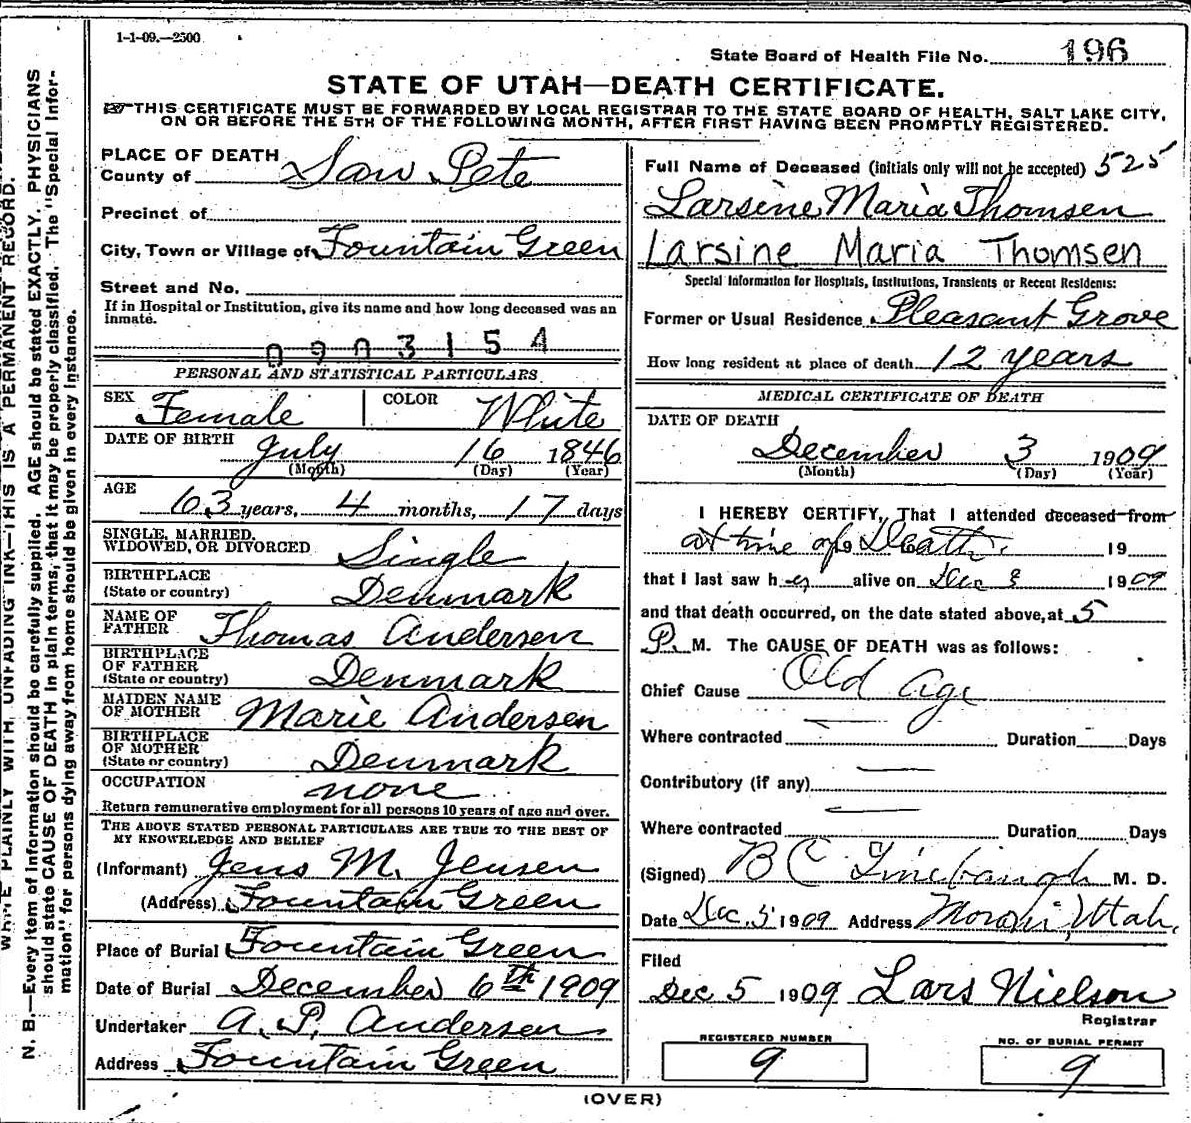 1-1-09.—2500
State Board of Health File No. 196
STATE OF UTAH—DEATH CERTIFICATE.
THIS CERTIFICATE MUST BE FORWARDED BY LOCAL REGISTRAR TO THE STATE BOARD OF HEALTH, SALT LAKE CITY,
ON OR BEFORE THE 5TH OF THE FOLLOWING MONTH, AFTER FIRST HAVING BEEN PROMPTLY REGISTERED.
PLACE OF DEATH
County of San Pete
Precinct of
City, Town or Village of Fountain Green
Street and No.
If in Hospital or Institution, give its name and how long deceased was an
inmate.
0903154
PERSONAL AND STATISTICAL PARTICULARS
SEX Female COLOR White
DATE OF BIRTH July 16 1846
(Month) (Day) (Year)
AGE
63 years, 4 months, 17 days
SINGLE, MARRIED,
WIDOWED, OR DIVORCED Single
BIRTHPLACE
(State or country) Denmark
NAME OF
FATHER Thomas Andersen
BIRTHPLACE
OF FATHER
(State or country) Denmark
MAIDEN NAME
OF MOTHER Marie Andersen
BIRTHPLACE
OF MOTHER
(State or country) Denmark
OCCUPATION none
Return remunerative employment for all persons 10 years of age and over.
THE ABOVE STATED PERSONAL PARTICULARS ARE TRUE TO THE BEST OF
MY KNOWLEDGE AND BELIEF
(Informant) Jens M. Jensen
(Address) Fountain Green
Place of Burial Fountain Green
Date of Burial December 6th 1909
Undertaker A. P. Andersen
Address Fountain Green
Full Name of Deceased (initials only will not be accepted) 525
Larsine Maria Thomsen
Larsine Maria Thomsen
Special Information for Hospitals, Institutions, Transients or Recent Residents:
Former or Usual Residence Pleasant Grove
How long resident at place of death 12 years
MEDICAL CERTIFICATE OF DEATH
DATE OF DEATH
December 3 1909
(Month) (Day) (Year)
I HEREBY CERTIFY, That I attended deceased from
at time of Death. 19
that I last saw her alive on Dec 3 1909
and that death occurred, on the date stated above, at 5
P. M. The CAUSE OF DEATH was as follows:
Chief Cause Old age
Where contracted Duration Days
Contributory (if any)
Where contracted Duration Days
(Signed) B C Linebaugh M. D.
Date Dec. 5 1909 Address Moroni, Utah.
Filed
Dec 5 1909 Lars Nielson
Registrar
REGISTERED NUMBER
9
NO. OF BURIAL PERMIT
9
(OVER)
WRITE PLAINLY WITH UNFADING INK—THIS IS A PERMANENT RECORD.
N. B.—Every item of information should be carefully supplied. AGE should be stated EXACTLY. PHYSICIANS
should state CAUSE OF DEATH in plain terms, that it may be properly classified. The "Special Infor-
mation" for persons dying away from home should be given in every instance.